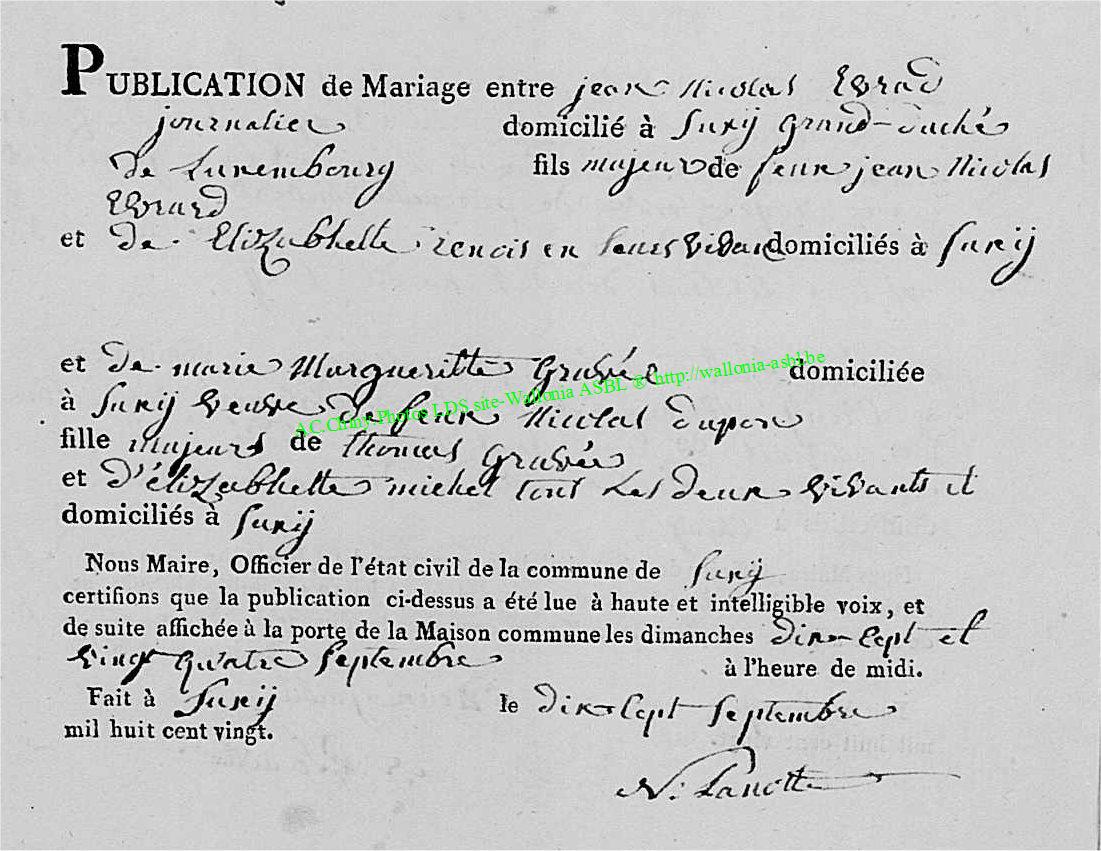 PUBLICATION de Mariage entre jean Nicolas Evrad
journalier domicilié à Suxÿ grand-duché
de Luxembourg fils majeur de feux jean Nicolas
Evrard
et de Elizabhette en domiciliés à Suxÿ
et de marie Margueritte Gravée domiciliée
à Suxÿ veuve de feux Nicolas dupon
AC.Chiny-Photos LDS site-Wallonia ASBL ® http://wallonia-asbl.be
fille majeure de thomas Gravée
et d'élizabhette michel tout Les deux vivants et
domiciliés à Suxÿ
Nous Maire, Officier de l'état civil de la commune de Suxÿ
certifions que la publication ci-dessus a été lue à haute et intelligible voix, et
de suite affichée à la porte de la Maison commune les dimanches dix Cept et
vingt quatre Septembre à l'heure de midi.
Fait à Suxÿ le dix Cept Septembre
mil huit cent vingt.
N. Lanotte